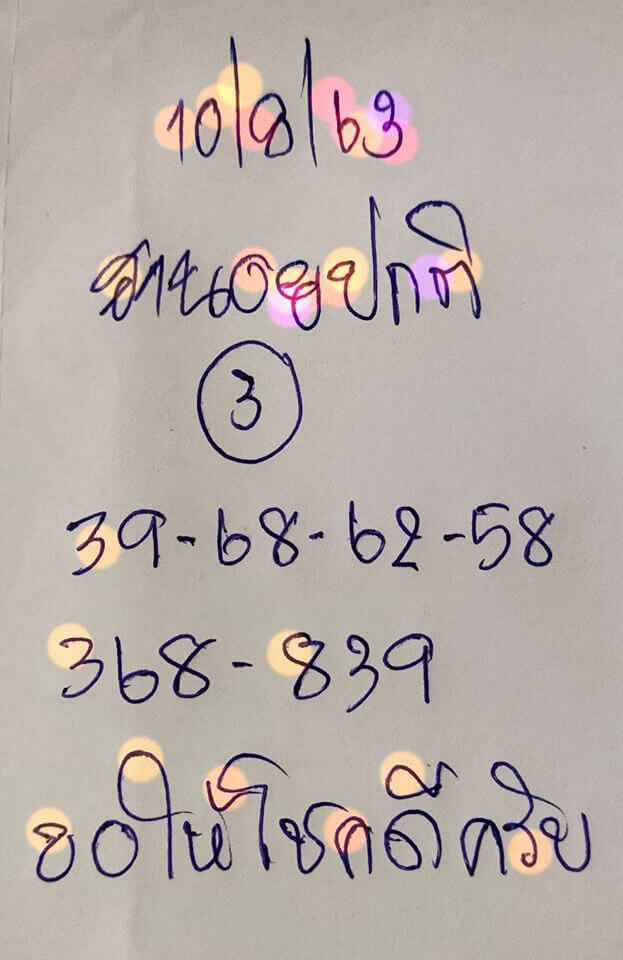 10/8/63
ฮานอยปกติ
3
39-68-62-58
368-839
ขอให้โชคดีครับ